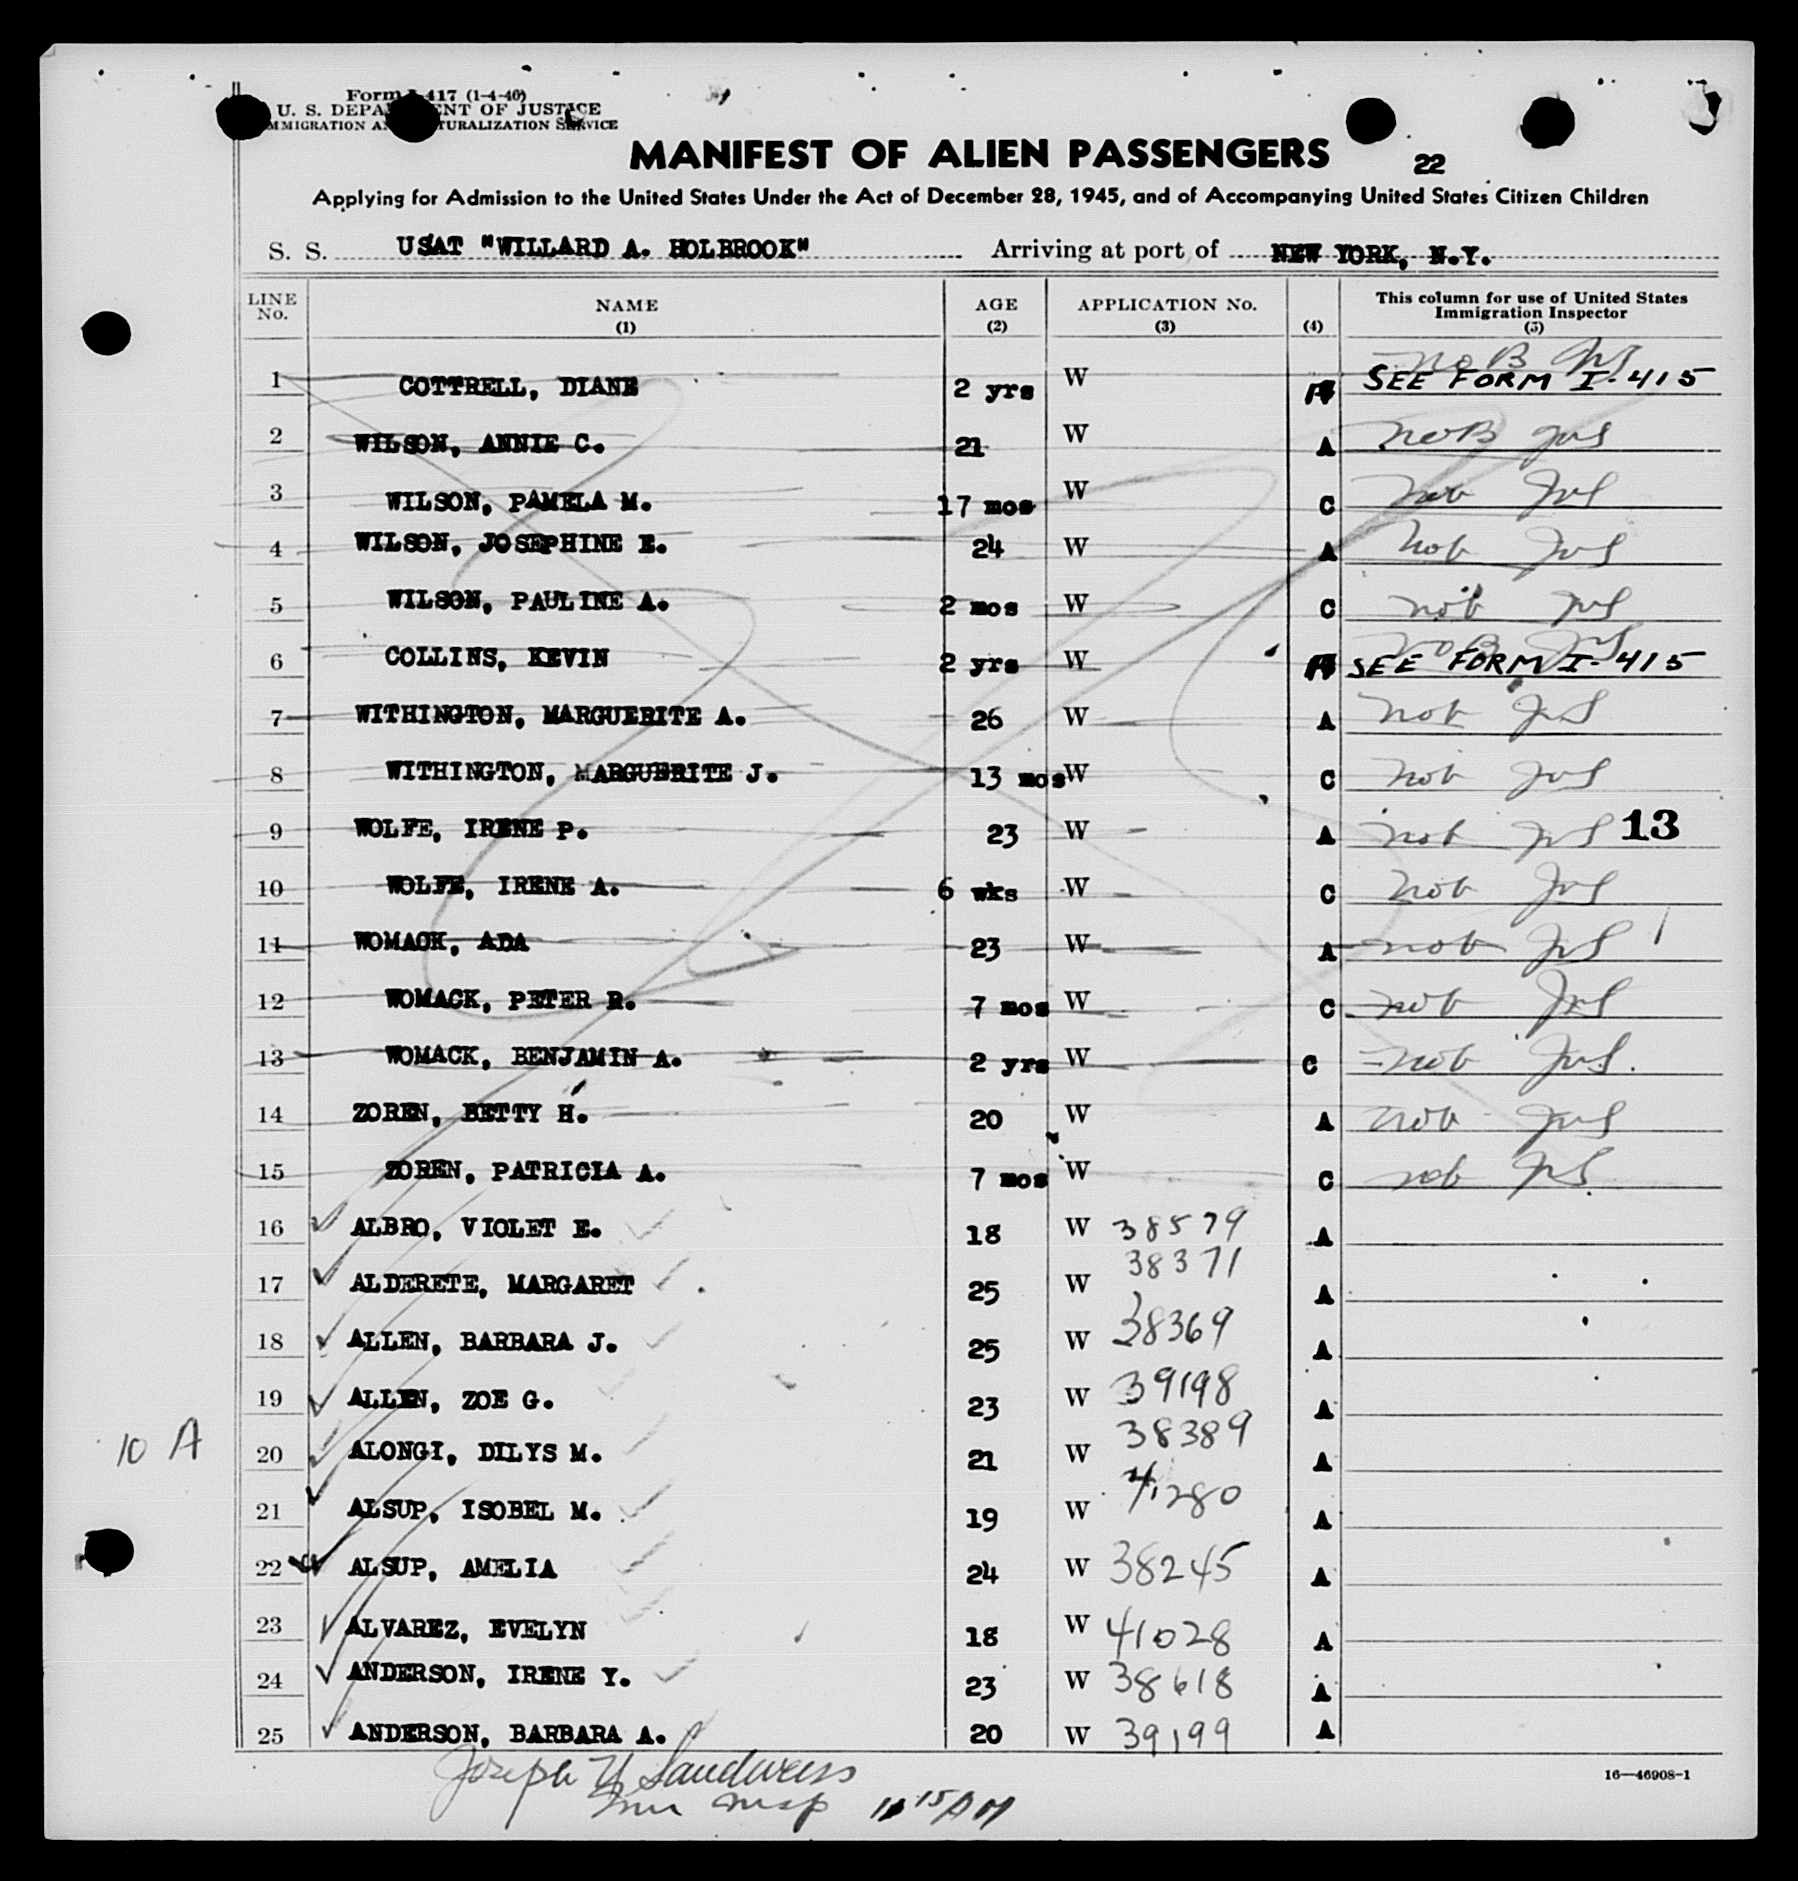 Form I-417 (1-4-46)
U. S. DEPARTMENT OF JUSTICE
IMMIGRATION AND NATURALIZATION SERVICE
MANIFEST OF ALIEN PASSENGERS 22
Applying for Admission to the United States Under the Act of December 28, 1945, and of Accompanying United States Citizen Children
S. S. USAT "WILLARD A. HOLBROOK" Arriving at port of NEW YORK, N.Y.
LINE No. NAME (1) AGE (2) APPLICATION No. (3) (4) This column for use of United States Immigration Inspector (5)
1 COTTRELL, DIANE 2 yrs W NOB SEE FORM I-415
2 WILSON, ANNIE C. 21 W A NOB
3 WILSON, PAMELA M. 17 mos W C nob
4 WILSON, JOSEPHINE E. 24 W A nob
5 WILSON, PAULINE A. 2 mos W C nob
6 COLLINS, KEVIN 2 yrs W NOB SEE FORM I-415
7 WITHINGTON, MARGUERITE A. 26 W A nob
8 WITHINGTON, MARGUERITE J. 13 mos W C nob
9 WOLFE, IRENE P. 23 W A nob 13
10 WOLFE, IRENE A. 6 wks W C nob
11 WOMACK, ADA 23 W A nob
12 WOMACK, PETER R. 7 mos W C nob
13 WOMACK, BENJAMIN A. 2 yrs W C nob
14 ZOREN, BETTY H. 20 W A nob
15 ZOREN, PATRICIA A. 7 mos W C nob
16 ALBRO, VIOLET E. 18 W 38579 A
17 ALDERETE, MARGARET 25 W 38371 A
18 ALLEN, BARBARA J. 25 W 38369 A
19 ALLEN, ZOE G. 23 W 39198 A
10 A
20 ALONGI, DILYS M. 21 W 38389 A
21 ALSUP, ISOBEL M. 19 W 41280 A
22 ALSUP, AMELIA 24 W 38245 A
23 ALVAREZ, EVELYN 18 W 41028 A
24 ANDERSON, IRENE Y. 23 W 38618 A
25 ANDERSON, BARBARA A. 20 W 39199 A
Joseph Y Sandweiss
Imm Insp 11 15 AM
16—46908-1